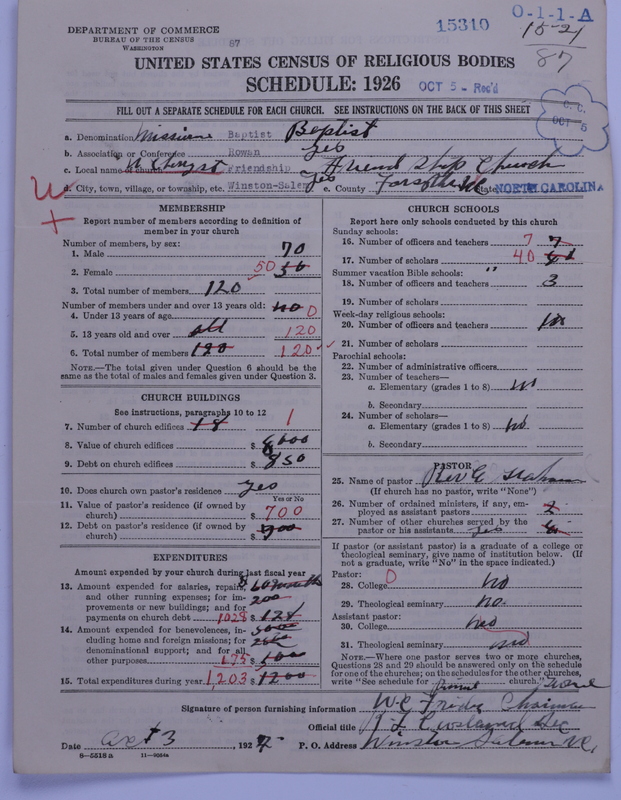 DEPARTMENT OF COMMERCE
BUREAU OF THE CENSUS
WASHINGTON
87
15310
O-1-1-A
15-21
87
UNITED STATES CENSUS OF RELIGIOUS BODIES
SCHEDULE: 1926
OCT 5 - Rec'd
FILL OUT A SEPARATE SCHEDULE FOR EACH CHURCH. SEE INSTRUCTIONS ON THE BACK OF THIS SHEET
C. C.
OCT 5
a. Denomination Baptist Baptist
b. Association or Conference Rowan yes
c. Local name of church Friendship Church
d. City, town, village, or township, etc. Winston-Salem yes e. County Forsythe State NORTH CAROLINA
MEMBERSHIP
Report number of members according to definition of
member in your church
Number of members, by sex:
1. Male 70
2. Female 50
3. Total number of members 120
Number of members under and over 13 years old:
4. Under 13 years of age no 0
5. 13 years old and over all 120
6. Total number of members 120 120
NOTE.—The total given under Question 6 should be
the same as the total of males and females given under Question 3.
CHURCH BUILDINGS
See instructions, paragraphs 10 to 12
7. Number of church edifices 18 1
8. Value of church edifices $ 8000
9. Debt on church edifices $ 850
10. Does church own pastor's residence yes
Yes or No
11. Value of pastor's residence (if owned by
church) $ 700
12. Debt on pastor's residence (if owned by
church) $ 900
EXPENDITURES
Amount expended by your church during last fiscal year
13. Amount expended for salaries, repairs,
and other running expenses; for im- 200
provements or new buildings; and for
payments on church debt 1028 $ 128
14. Amount expended for benevolences, in-
cluding home and foreign missions; for
denominational support; and for all
other purposes 175 $ 100
15. Total expenditures during year 1,203 $ 1200
CHURCH SCHOOLS
Report here only schools conducted by this church
Sunday schools:
16. Number of officers and teachers 7 7
17. Number of scholars 40
Summer vacation Bible schools: "
18. Number of officers and teachers 3
19. Number of scholars
Week-day religious schools:
20. Number of officers and teachers
21. Number of scholars
Parochial schools:
22. Number of administrative officers
23. Number of teachers—
a. Elementary (grades 1 to 8) no
b. Secondary
24. Number of scholars—
a. Elementary (grades 1 to 8) no
b. Secondary
PASTOR
25. Name of pastor Rev G
(If church has no pastor, write "None")
26. Number of ordained ministers, if any, em-
ployed as assistant pastors
27. Number of other churches served by the
pastor or his assistants yes
If pastor (or assistant pastor) is a graduate of a college or
theological seminary, give name of institution below. (If
not a graduate, write "No" in the space indicated.)
Pastor: 0
28. College no
29. Theological seminary no
Assistant pastor:
30. College no
31. Theological seminary no
NOTE.—Where one pastor serves two or more churches,
Questions 28 and 29 should be answered only on the schedule
for one of the churches; on the schedules for the other churches,
write "See schedule for church."
Signature of person furnishing information
Official title
Date Oct 3, 192 P. O. Address Winston Salem NC,
8—5518 a 11—9564a